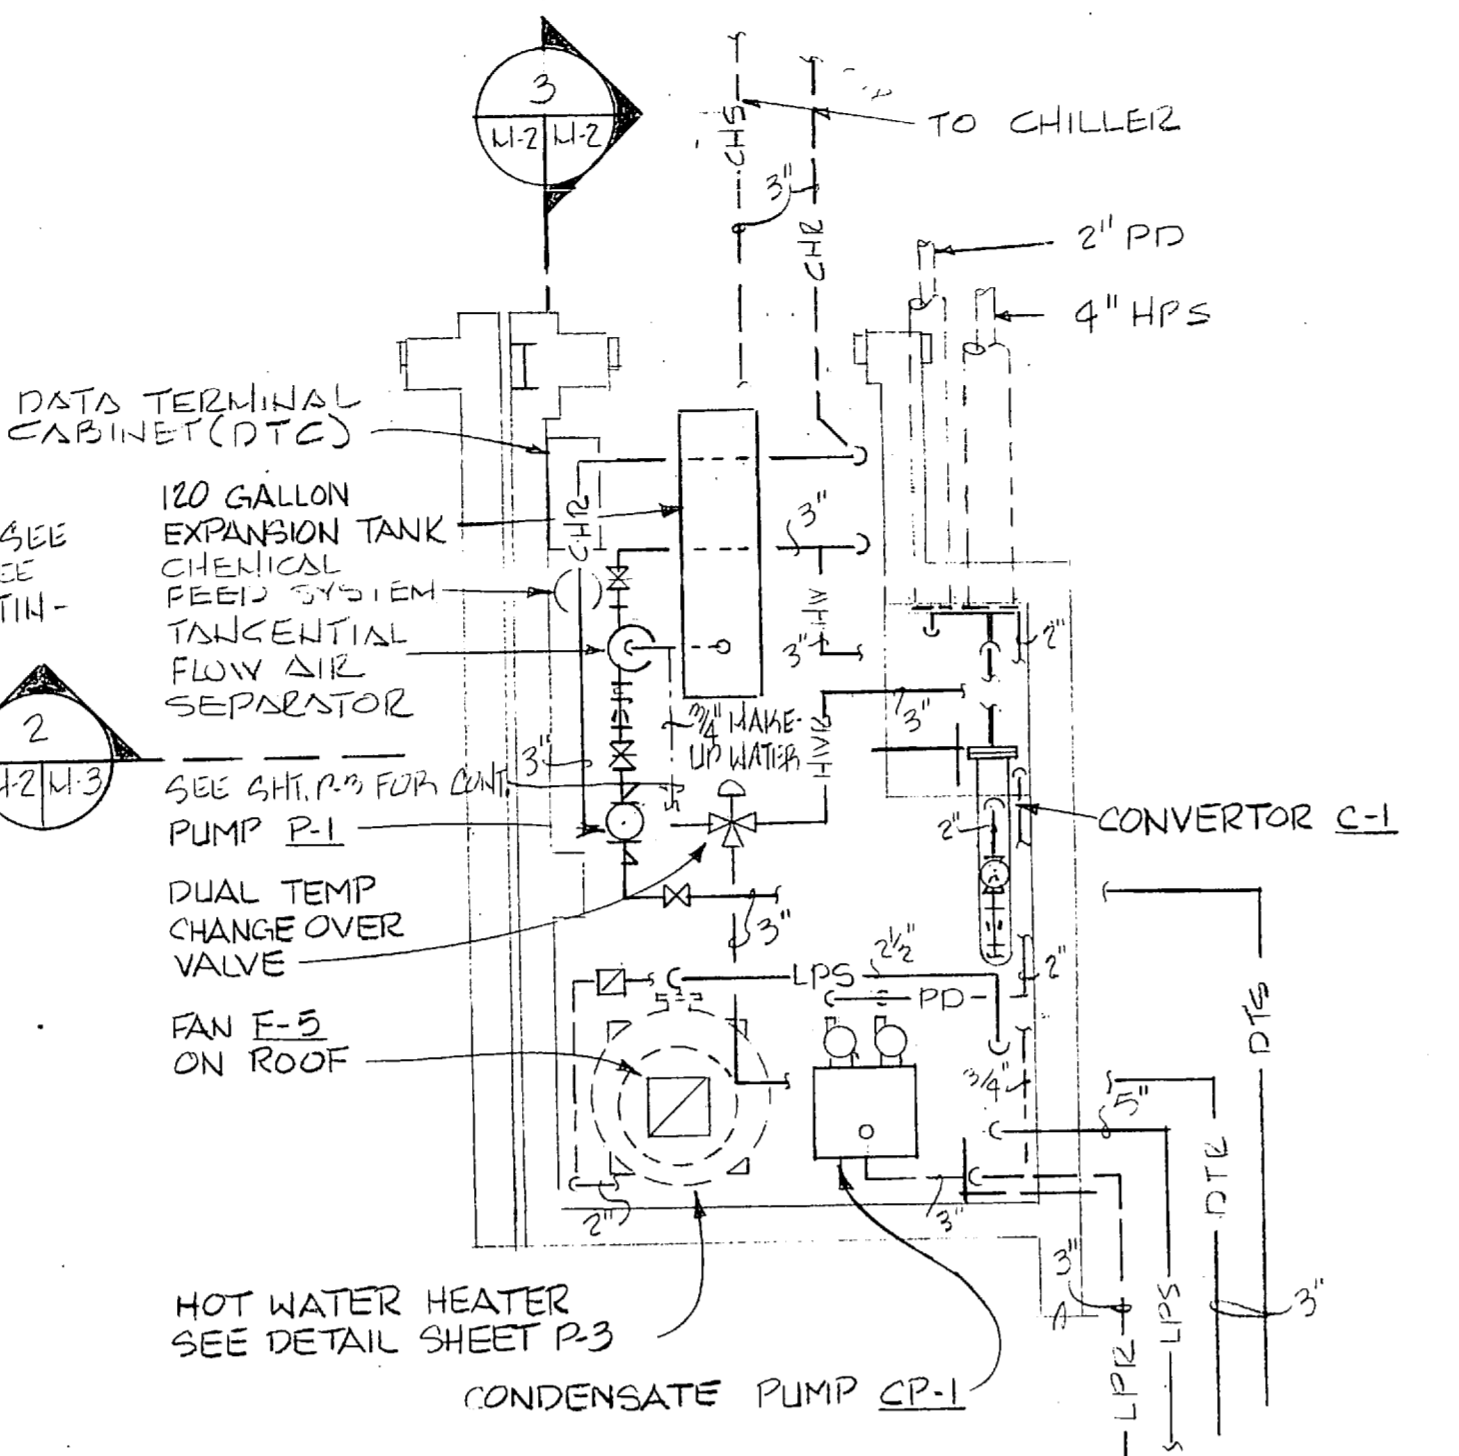 3
M-2 M-2
CHS
TO CHILLER
3"
CHR
2" PD
4" HPS
DATA TERMINAL
CABINET (DTC)
120 GALLON
EXPANSION TANK
SEE
EE
TIN-
CHEMICAL
FEED SYSTEM
TANGENTIAL
FLOW AIR
SEPARATOR
CHR
3"
HW
3"
2"
3"
3/4" MAKE-
UP WATER
HWR
2
M-3
3"
SEE SHT. P-3 FOR CONT.
PUMP P-1
CONVERTOR C-1
2"
DUAL TEMP
CHANGE OVER
VALVE
3"
2 1/2"
LPS
PD
2"
FAN F-5
ON ROOF
DTS
3/4"
5"
DTR
2"
3"
HOT WATER HEATER
SEE DETAIL SHEET P-3
3"
3"
LPS
LPR
CONDENSATE PUMP CP-1